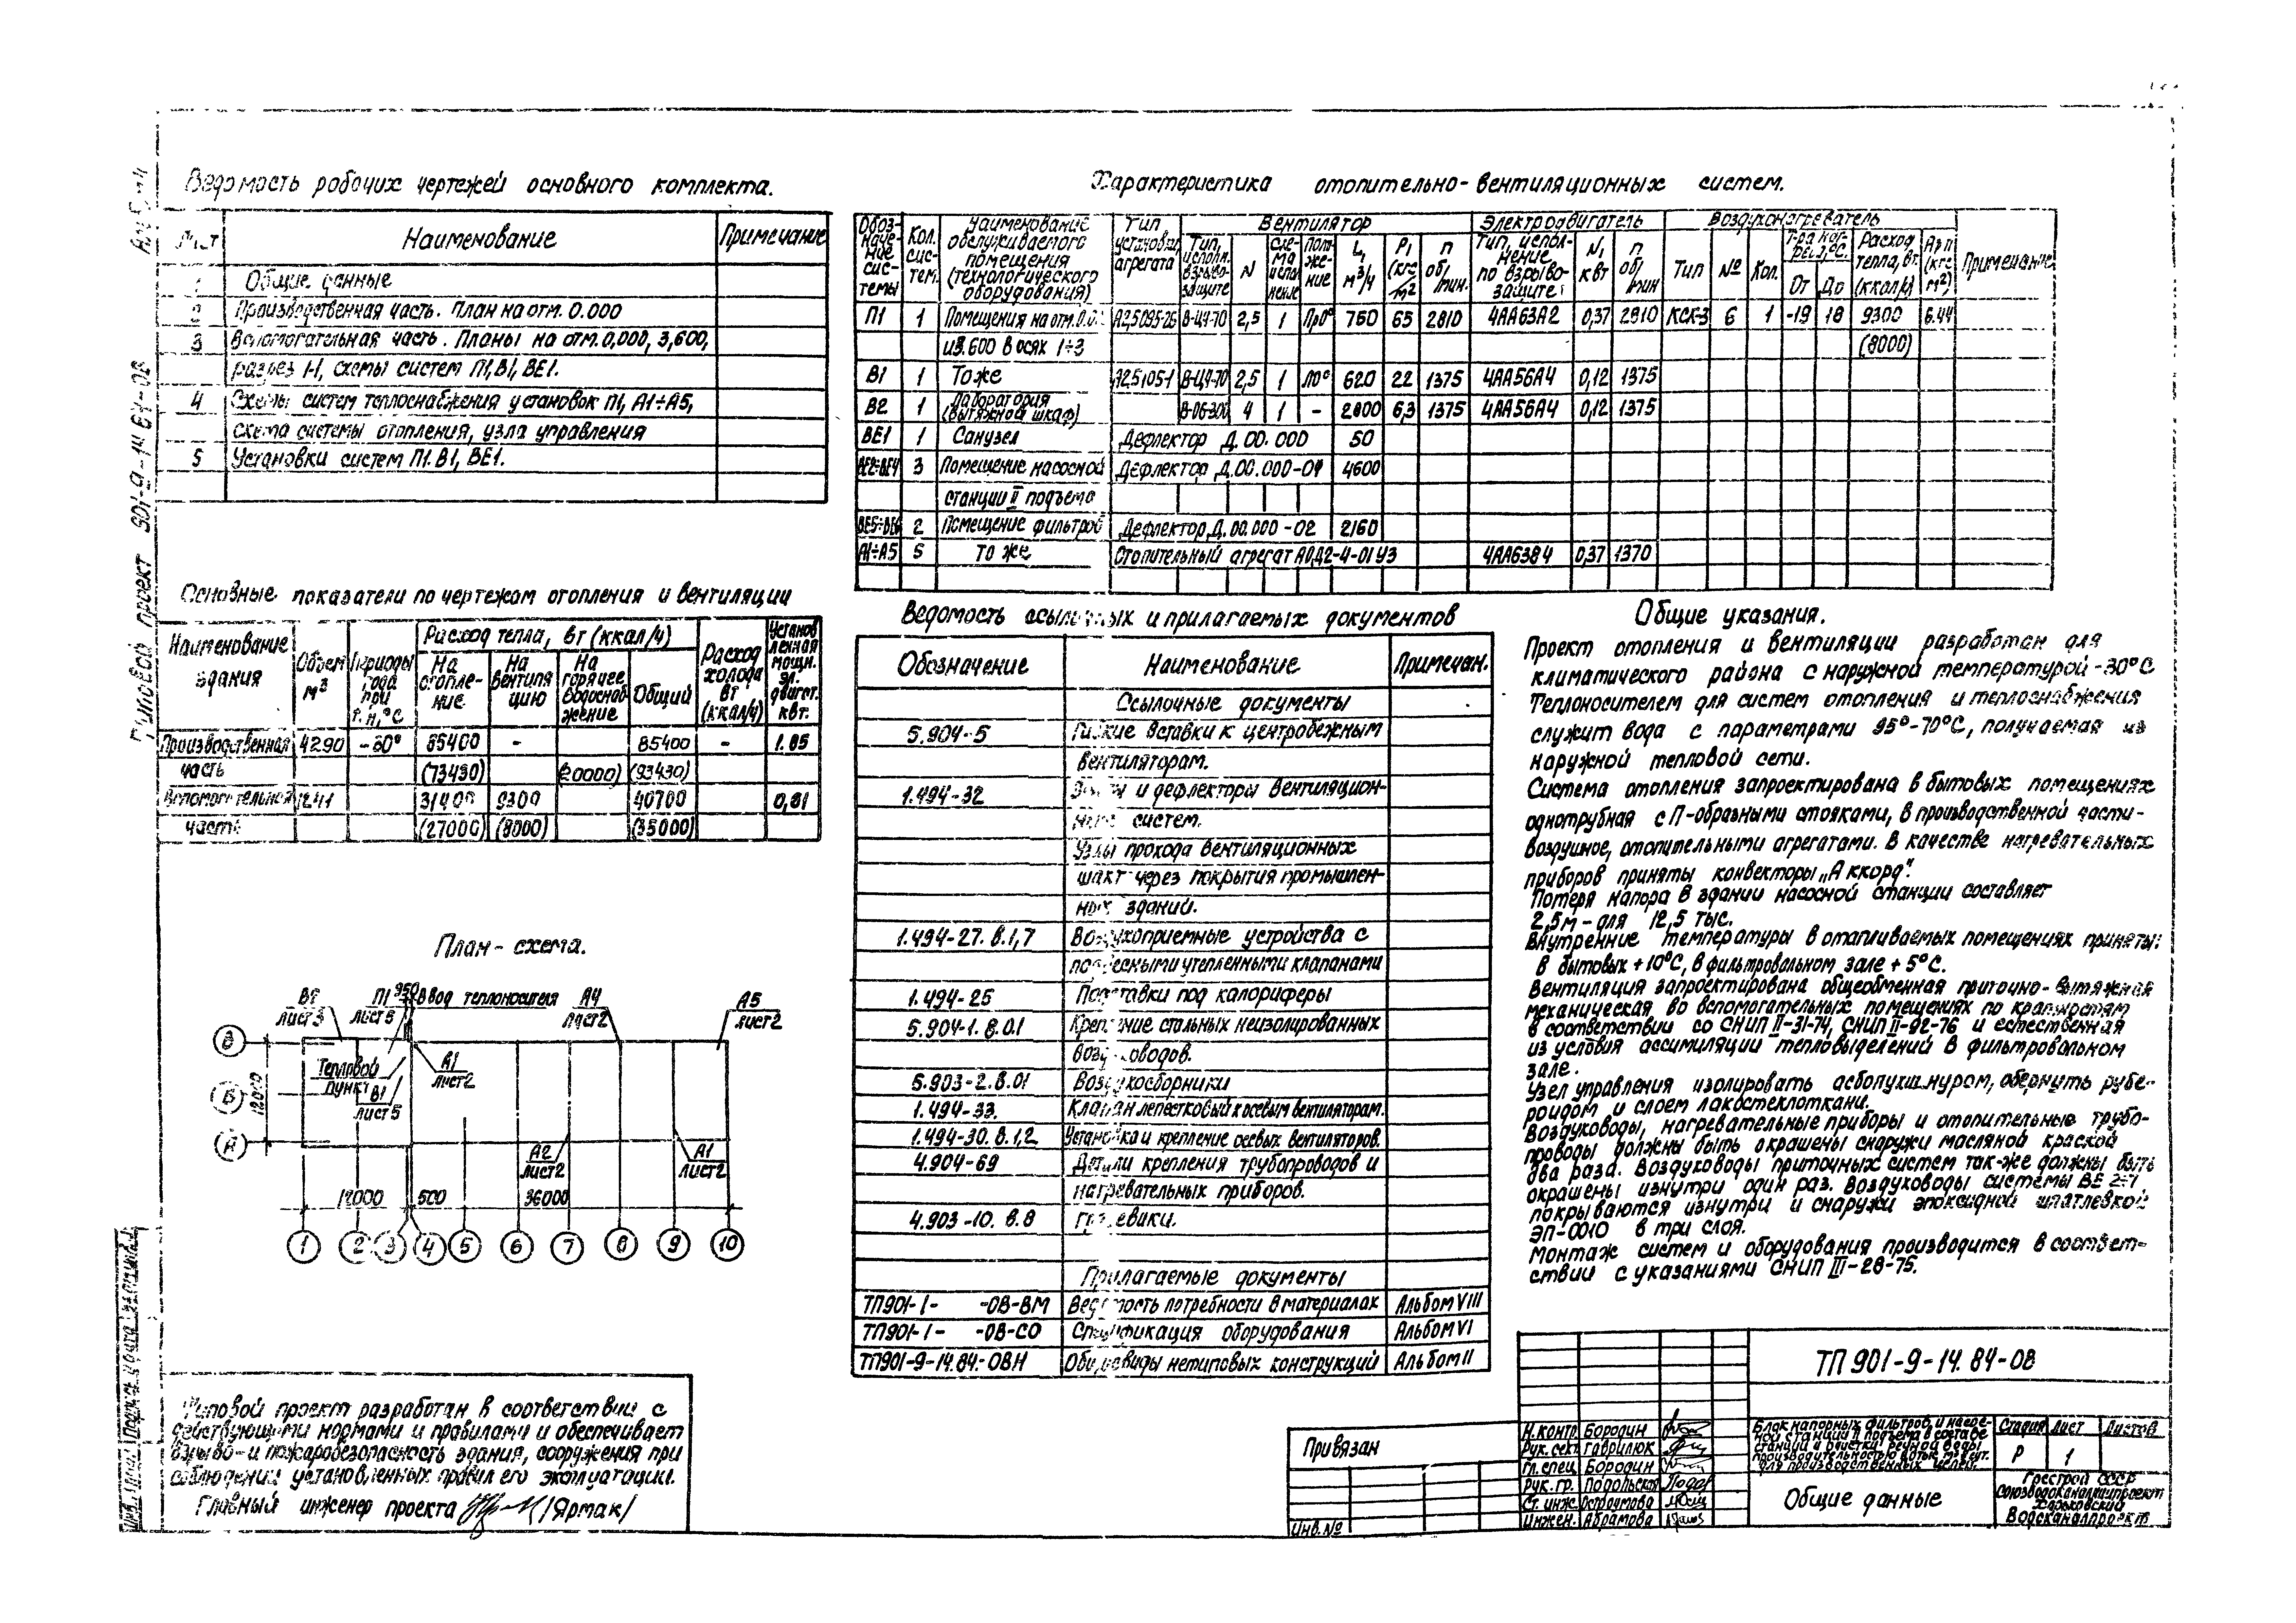 Ведомость рабочих чертежей основного комплекта.
Лист Наименование Примечание
1 Общие данные
2 Производственная часть. План на отм. 0.000
3 Вспомогательная часть. Планы на отм. 0,000, 3,600,
разрез 1-1, схемы систем П1, В1, ВЕ1.
4 Схемы систем теплоснабжения установок П1, А1÷А5,
схема системы отопления, узла управления
5 Установки систем П1. В1, ВЕ1.
Типовой проект 901-9-14.84-ОВ
Характеристика отопительно-вентиляционных систем.
Обозначение системы
Кол. систем.
Наименование обслуживаемого помещения (технологического оборудования)
Тип установки агрегата
Вентилятор
Тип, исполн. взрывозащите N Схема исполнение Положение L, м³/ч P, (кгс/м²) п об/мин.
Электродвигатель
Тип, исполнение по взрывозащите N, квт п об/мин
Воздухонагреватель
Тип № Кол. Т-ра нагрева, °С. От До Расход тепла, Вт. (ккал/ч) ΔР п (кгс м²)
Примечание
П1 1 Помещения на отм. А2,5095-2б В-Ц4-70 2,5 1 Пр0° 760 65 2810 4АА63А2 0,37 2810 КСК-3 6 1 -19 18 9300 6.44
и 3.600 в осях 1÷3 (8000)
В1 1 Тоже А2,5105-1 В-Ц4-70 2,5 1 Л0° 620 22 1375 4АА56А4 0,12 1375
В2 1 Лаборатория (вытяжной шкаф) В-06-300 4 1 - 2800 6,3 1375 4АА56А4 0,12 1375
ВЕ1 1 Санузел Дефлектор Д.00.000 50
ВЕ2÷ВЕ4 3 Помещение насосной Дефлектор Д.00.000-04 4600
станции II подъема
ВЕ5÷ВЕ6 2 Помещение фильтров Дефлектор Д.00.000-02 2160
А1÷А5 5 то же Отопительный агрегат АОД2-4-01У3 4АА63В4 0,37 1370
Основные показатели по чертежам отопления и вентиляции
Наименование здания
Объем м³
Периоды года при t. н, °С
Расход тепла, Вт (ккал/ч)
На отопление На вентиляцию На горячее водоснабжение Общий
Расход холода Вт (ккал/ч)
Установленная мощн. эл. двигат. квт.
Производственная 4290 -30° 85400 - 85400 - 1.85
часть (73430) (20000) (93430)
Вспомогательная 1241 31400 9300 40700 0,61
часть (27000) (8000) (35000)
Ведомость ссылочных и прилагаемых документов
Обозначение Наименование Примечан.
Ссылочные документы
5.904-5 Гибкие вставки к центробежным
вентиляторам.
1.494-32 Зонты и дефлекторы вентиляцион-
ных систем.
Узлы прохода вентиляционных
шахт через покрытия промышлен-
ных зданий.
1.494-27. в.1,7 Воздухоприемные устройства с
подвесными утепленными клапанами
1.494-25 Подставки под калориферы
5.904-1. в.0.1 Крепление стальных неизолированных
воздуховодов.
5.903-2. в.01 Воздухосборники
1.494-33. Клапан лепестковый к осевым вентиляторам.
1.494-30. в.1,2 Установка и крепление осевых вентиляторов.
4.904-69 Детали крепления трубопроводов и
нагревательных приборов.
4.903-10. в.8 грязевики.
Прилагаемые документы
ТП901-1- -ОВ-ВМ Ведомость потребности в материалах Альбом VIII
ТП901-1- -ОВ-СО Спецификация оборудования Альбом VI
ТП901-9-14.84-ОВН Общие виды нетиповых конструкций Альбом II
Общие указания.
Проект отопления и вентиляции разработан для
климатического района с наружной температурой -30°С
Теплоносителем для систем отопления и теплоснабжения
служит вода с параметрами 95°-70°С, получаемая из
наружной тепловой сети.
Система отопления запроектирована в бытовых помещениях
однотрубная с П-образными стояками, в производственной части-
воздушное, отопительными агрегатами. В качестве нагревательных
приборов приняты конвекторы „Аккорд".
Потеря напора в здании насосной станции составляет
2,5м-для 12,5 тыс.
Внутренние температуры в отапливаемых помещениях приняты:
в бытовых +10°С, в фильтровальном зале +5°С.
Вентиляция запроектирована общеобменная приточно-вытяжная
механическая во вспомогательных помещениях по кратностям
в соответствии со СНИП II-31-74, СНИП II-92-76 и естественная
из условия ассимиляции тепловыделений в фильтровальном
зале.
Узел управления изолировать асбопухшнуром, обернуть рубе-
роидом и слоем лакостеклоткани.
Воздуховоды, нагревательные приборы и отопительные трубо-
проводы должны быть окрашены снаружи масляной краской
два раза. Воздуховоды приточных систем так-же должны быть
окрашены изнутри один раз. Воздуховоды системы ВЕ
покрываются изнутри и снаружи эпоксидной шпатлевкой
ЭП-0010 в три слоя.
Монтаж систем и оборудования производится в соответ-
ствии с указаниями СНИП III-28-75.
План-схема.
В2 лист3
П1 лист5
950
Ввод теплоносителя
А4 лист2
А5 лист2
Тепловой пункт
В1 лист5
А1 лист2
А2 лист2
А1 лист2
Б
А
12000
12000 500 36000
1 2 3 4 5 6 7 8 9 10
Типовой проект разработан в соответствии с
действующими нормами и правилами и обеспечивает
взрыво-и пожаробезопасность здания, сооружения при
соблюдении установленных правил его эксплуатации.
Главный инженер проекта /Ярмак/
Привязан
Инв.№
Н.контр. Бородин
Рук. сект. Гаврилюк
Гл. спец. Бородин
Рук. гр. Подольская
Ст. инж. Остроумова
Инжен. Абрамова
ТП 901-9-14.84-ОВ
Блок напорных фильтров и насос-
ной станции II подъема в составе
станции очистки речной воды
для производственных целей.
Стадия Лист Листов
Р 1
Общие данные
Госстрой СССР
Союзводоканалпроект
Харьковский
Водоканалпроект